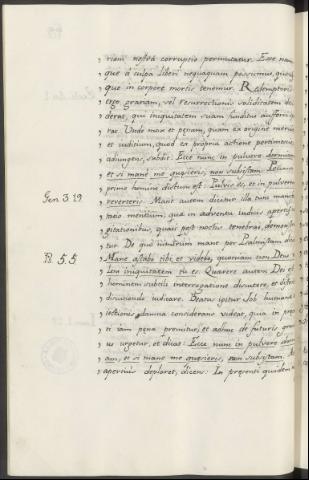 , riam nostra corruptio permutatur. Esse nam
, que à culpa liberi nequaquam possumus, quous
, que in corpore mortis tenemur. Redemptoris
, ergo gratiam, vel resurrectionis soliditatem de
, derat, qui iniquitatem suam funditus auferri
, rae. Unde mox et pœnam, quam ex origine meruit
, et iudicium, quod ex propria actione pertimescit,
, adiungens, subdit: Ecce nunc in pulvere dormiam
, et si mane me quesieris, non subsistam. Peccanti
, primo homini dictum est: Pulvis es, et in pulverem
Gen 3.19 , reverteris. Mane autem dicitur illa tunc mani
, tatio mentium, quae in adventu iudicis apertis
, gitationibus, quasi post noctis tenebras, demonstra
, tur. De quo nimirum mane per Psalmistam dici
Ps. 5.5 , Mane astabo tibi, et videbo, quoniam non Deus
, lens iniquitatem tu es. Quaerere autem Dei est
, hominem subtili interrogatione discutere, et distri
, discutiendo iudicare. Beatus igitur Iob humanae
, iectionis damna considerans videat, quia in pres
, ti iam pena premitur, et adhuc de futuris grav
, us urgetur, et dicat: Ecce nunc in pulvere dormi
, am, et si mane me quesieris, non subsistam. Ac
, apertius deploret, dicens: In presenti quidem